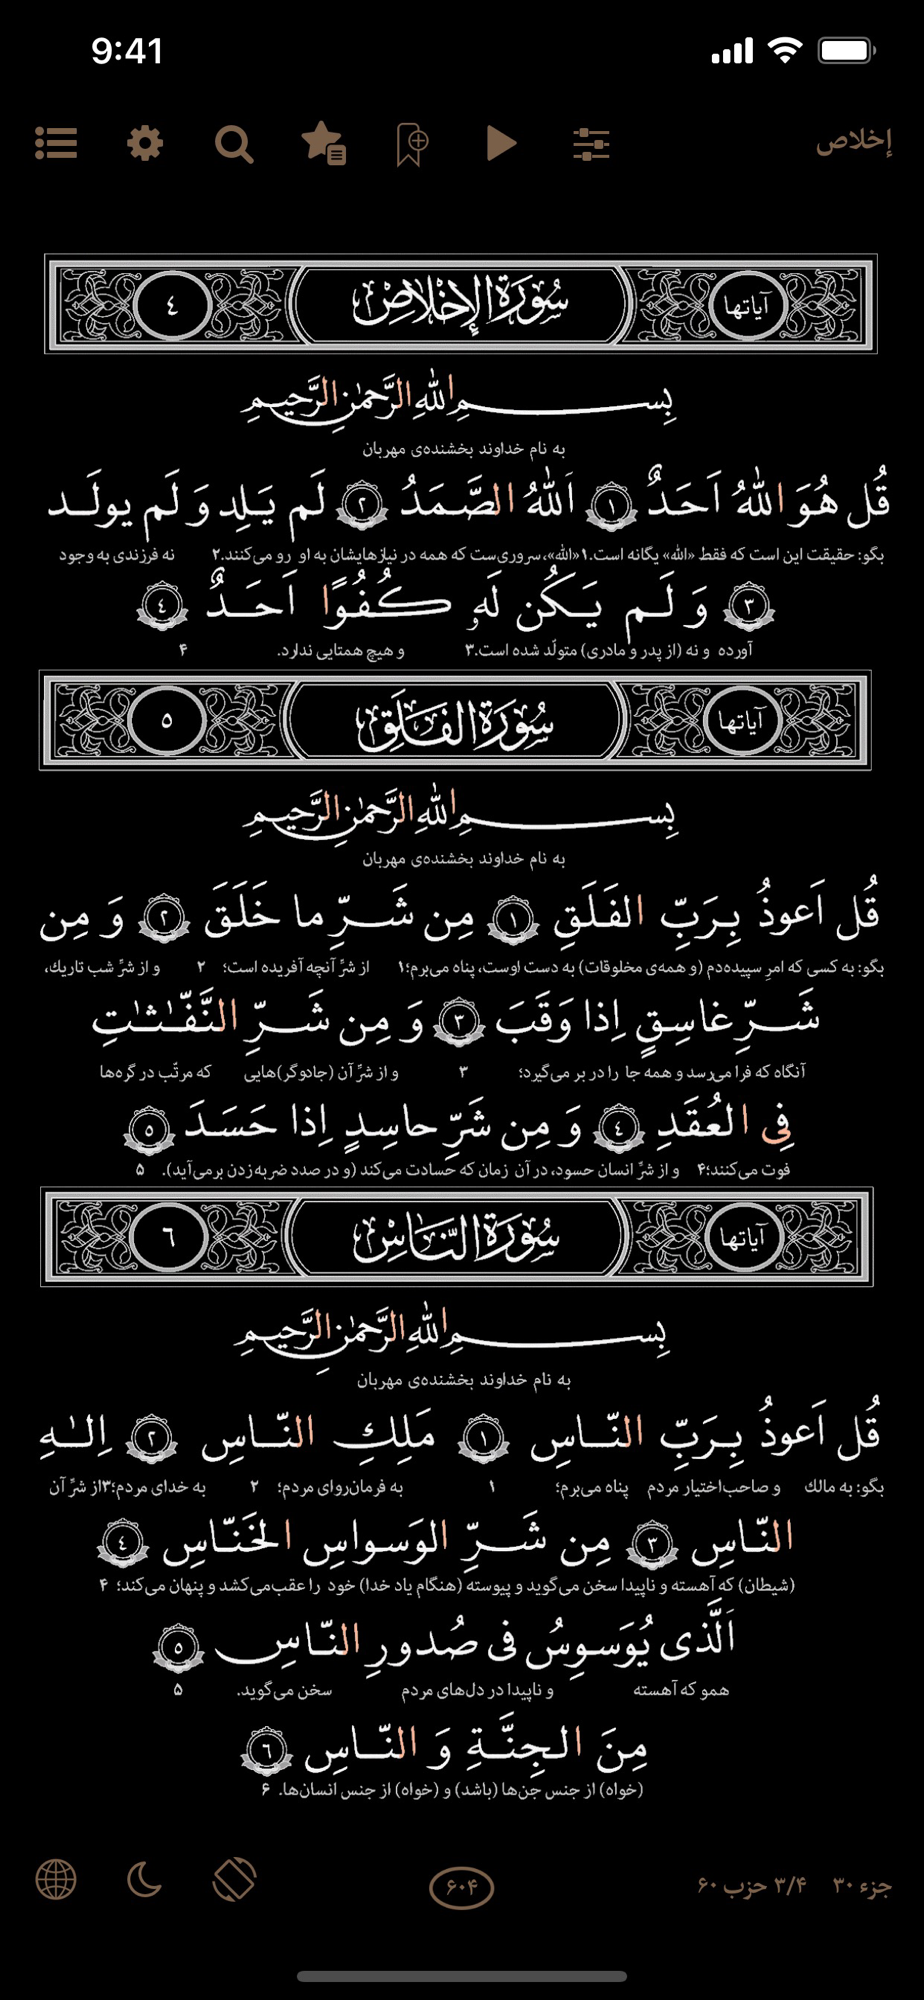 9:41
إخلاص
آیاتها سُورَةُ الإِخلَاصِ ٤
بِسمِ اللّٰهِ الرَّحمٰنِ الرَّحیمِ
به نام خداوند بخشنده‌ی مهربان
قُل هُوَ اللّٰهُ اَحَدٌ ١ اَللّٰهُ الصَّمَدُ ٢ لَم یَلِد وَ لَم یولَد
بگو: حقیقت این است که فقط «الله» یگانه است.۱ «الله»، سروری‌ست که همه در نیازهایشان به او رو می‌کنند.۲ نه فرزندی به وجود
٣ وَ لَم یَکُن لَهٗ کُفُوًا اَحَدٌ ٤
آورده و نه (از پدر و مادری) متولّد شده است.۳ و هیچ همتایی ندارد. ۴
آیاتها سُورَةُ الفَلَقِ ٥
بِسمِ اللّٰهِ الرَّحمٰنِ الرَّحیمِ
به نام خداوند بخشنده‌ی مهربان
قُل اَعوذُ بِرَبِّ الفَلَقِ ١ مِن شَرِّ ما خَلَقَ ٢ وَ مِن
بگو: به کسی که امرِ سپیده‌دم (و همه‌ی مخلوقات) به دست اوست، پناه می‌برم؛۱ از شرِّ آنچه آفریده است؛ ۲ و از شرِّ شب تاریک،
شَرِّ غاسِقٍ اِذا وَقَبَ ٣ وَ مِن شَرِّ النَّفّٰثٰتِ
آنگاه که فرا می‌رسد و همه جا را در بر می‌گیرد؛ ۳ و از شرِّ آن (جادوگر)هایی که مرتّب در گره‌ها
فِی العُقَدِ ٤ وَ مِن شَرِّ حاسِدٍ اِذا حَسَدَ ٥
فوت می‌کنند؛۴ و از شرِّ انسان حسود، در آن زمان که حسادت می‌کند (و در صدد ضربه‌زدن برمی‌آید). ۵
آیاتها سُورَةُ النَّاسِ ٦
بِسمِ اللّٰهِ الرَّحمٰنِ الرَّحیمِ
به نام خداوند بخشنده‌ی مهربان
قُل اَعوذُ بِرَبِّ النّاسِ ١ مَلِكِ النّاسِ ٢ اِلٰهِ
بگو: به مالك و صاحب‌اختیار مردم پناه می‌برم؛ ۱ به فرمان‌روای مردم؛ ۲ به خدای مردم؛۳ از شرِّ آن
النّاسِ ٣ مِن شَرِّ الوَسواسِ الخَنّاسِ ٤
(شیطان) که آهسته و ناپیدا سخن می‌گوید و پیوسته (هنگام یاد خدا) خود را عقب‌می‌کشد و پنهان می‌کند؛ ۴
اَلَّذی یُوَسوِسُ فی صُدورِ النّاسِ ٥
همو که آهسته و ناپیدا در دل‌های مردم سخن می‌گوید. ۵
مِنَ الجِنَّةِ وَ النّاسِ ٦
(خواه) از جنس جن‌ها (باشد) و (خواه) از جنس انسان‌ها. ۶
جزء ۳۰ ۳/۴ حزب ۶۰
۶۰۴